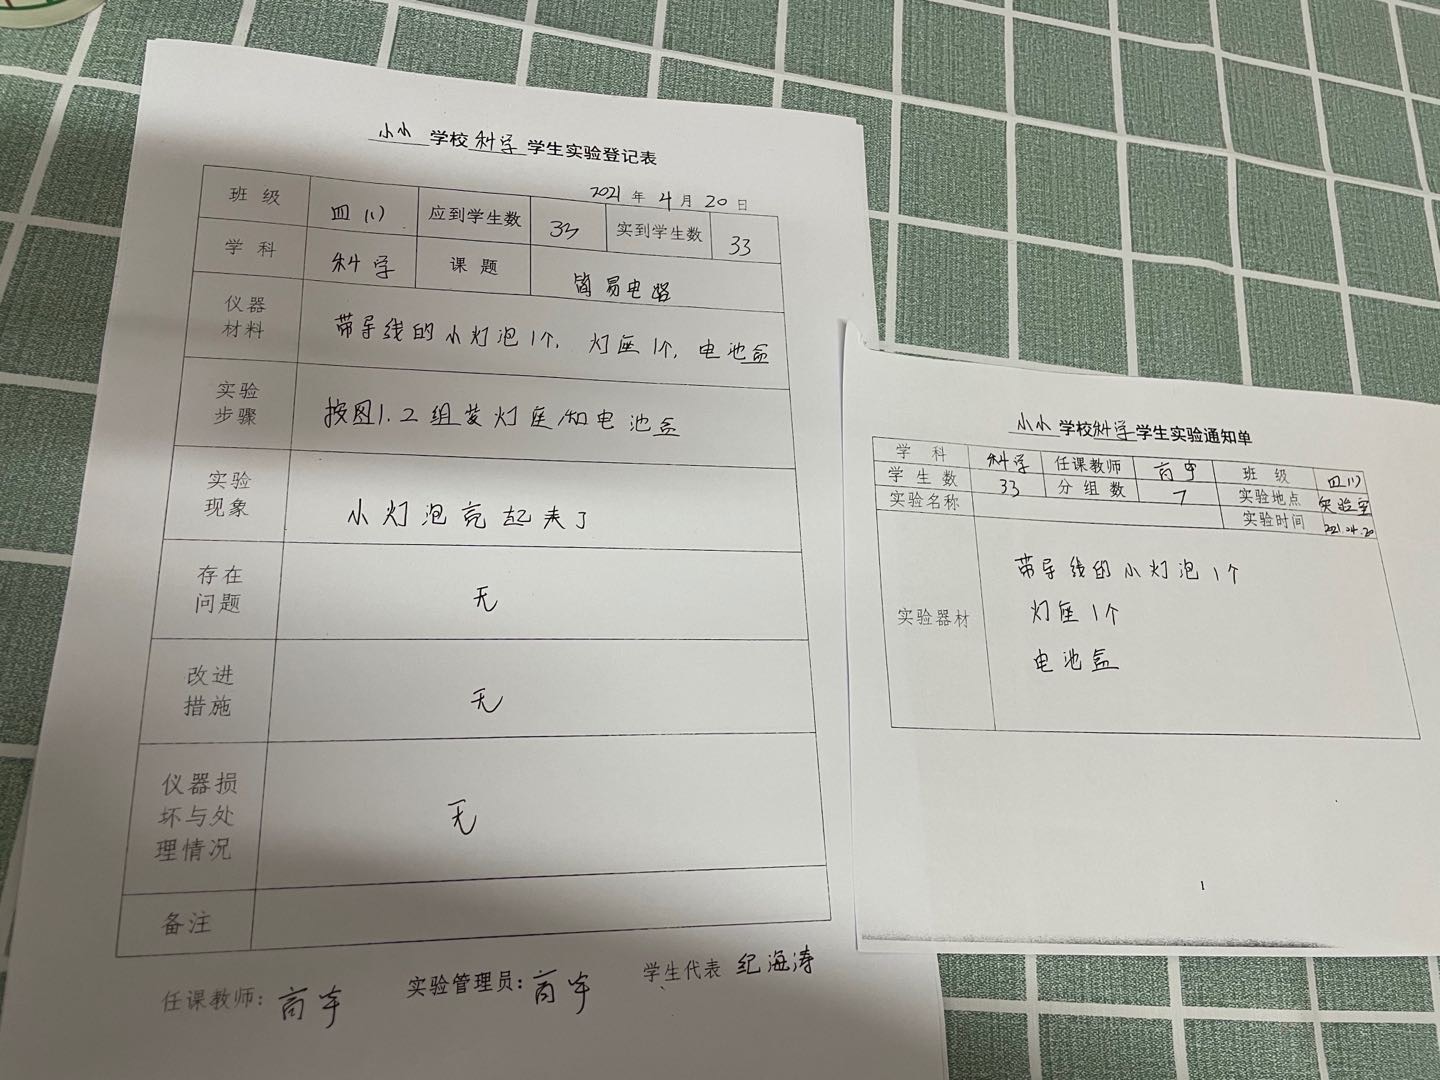 小小 学校 科学 学生实验登记表
2021 年 4 月 20 日
班 级 四(1) 应到学生数 33 实到学生数 33
学 科 科学 课 题 简易电路
仪器
材料
带导线的小灯泡1个, 灯座1个, 电池盒
实验
步骤
按图1.2组装灯座和电池盒
实验
现象
小灯泡亮起来了
存在
问题
无
改进
措施
无
仪器损
坏与处
理情况
无
备注
任课教师: 商宇 实验管理员: 商宇 学生代表 纪海涛
小小 学校 科学 学生实验通知单
学 科 科学 任课教师 商宇 班 级 四(1)
学 生 数 33 分 组 数 7 实验地点 实验室
实验名称 实验时间 2021.04.20
实验器材
带导线的小灯泡1个
灯座1个
电池盒
1